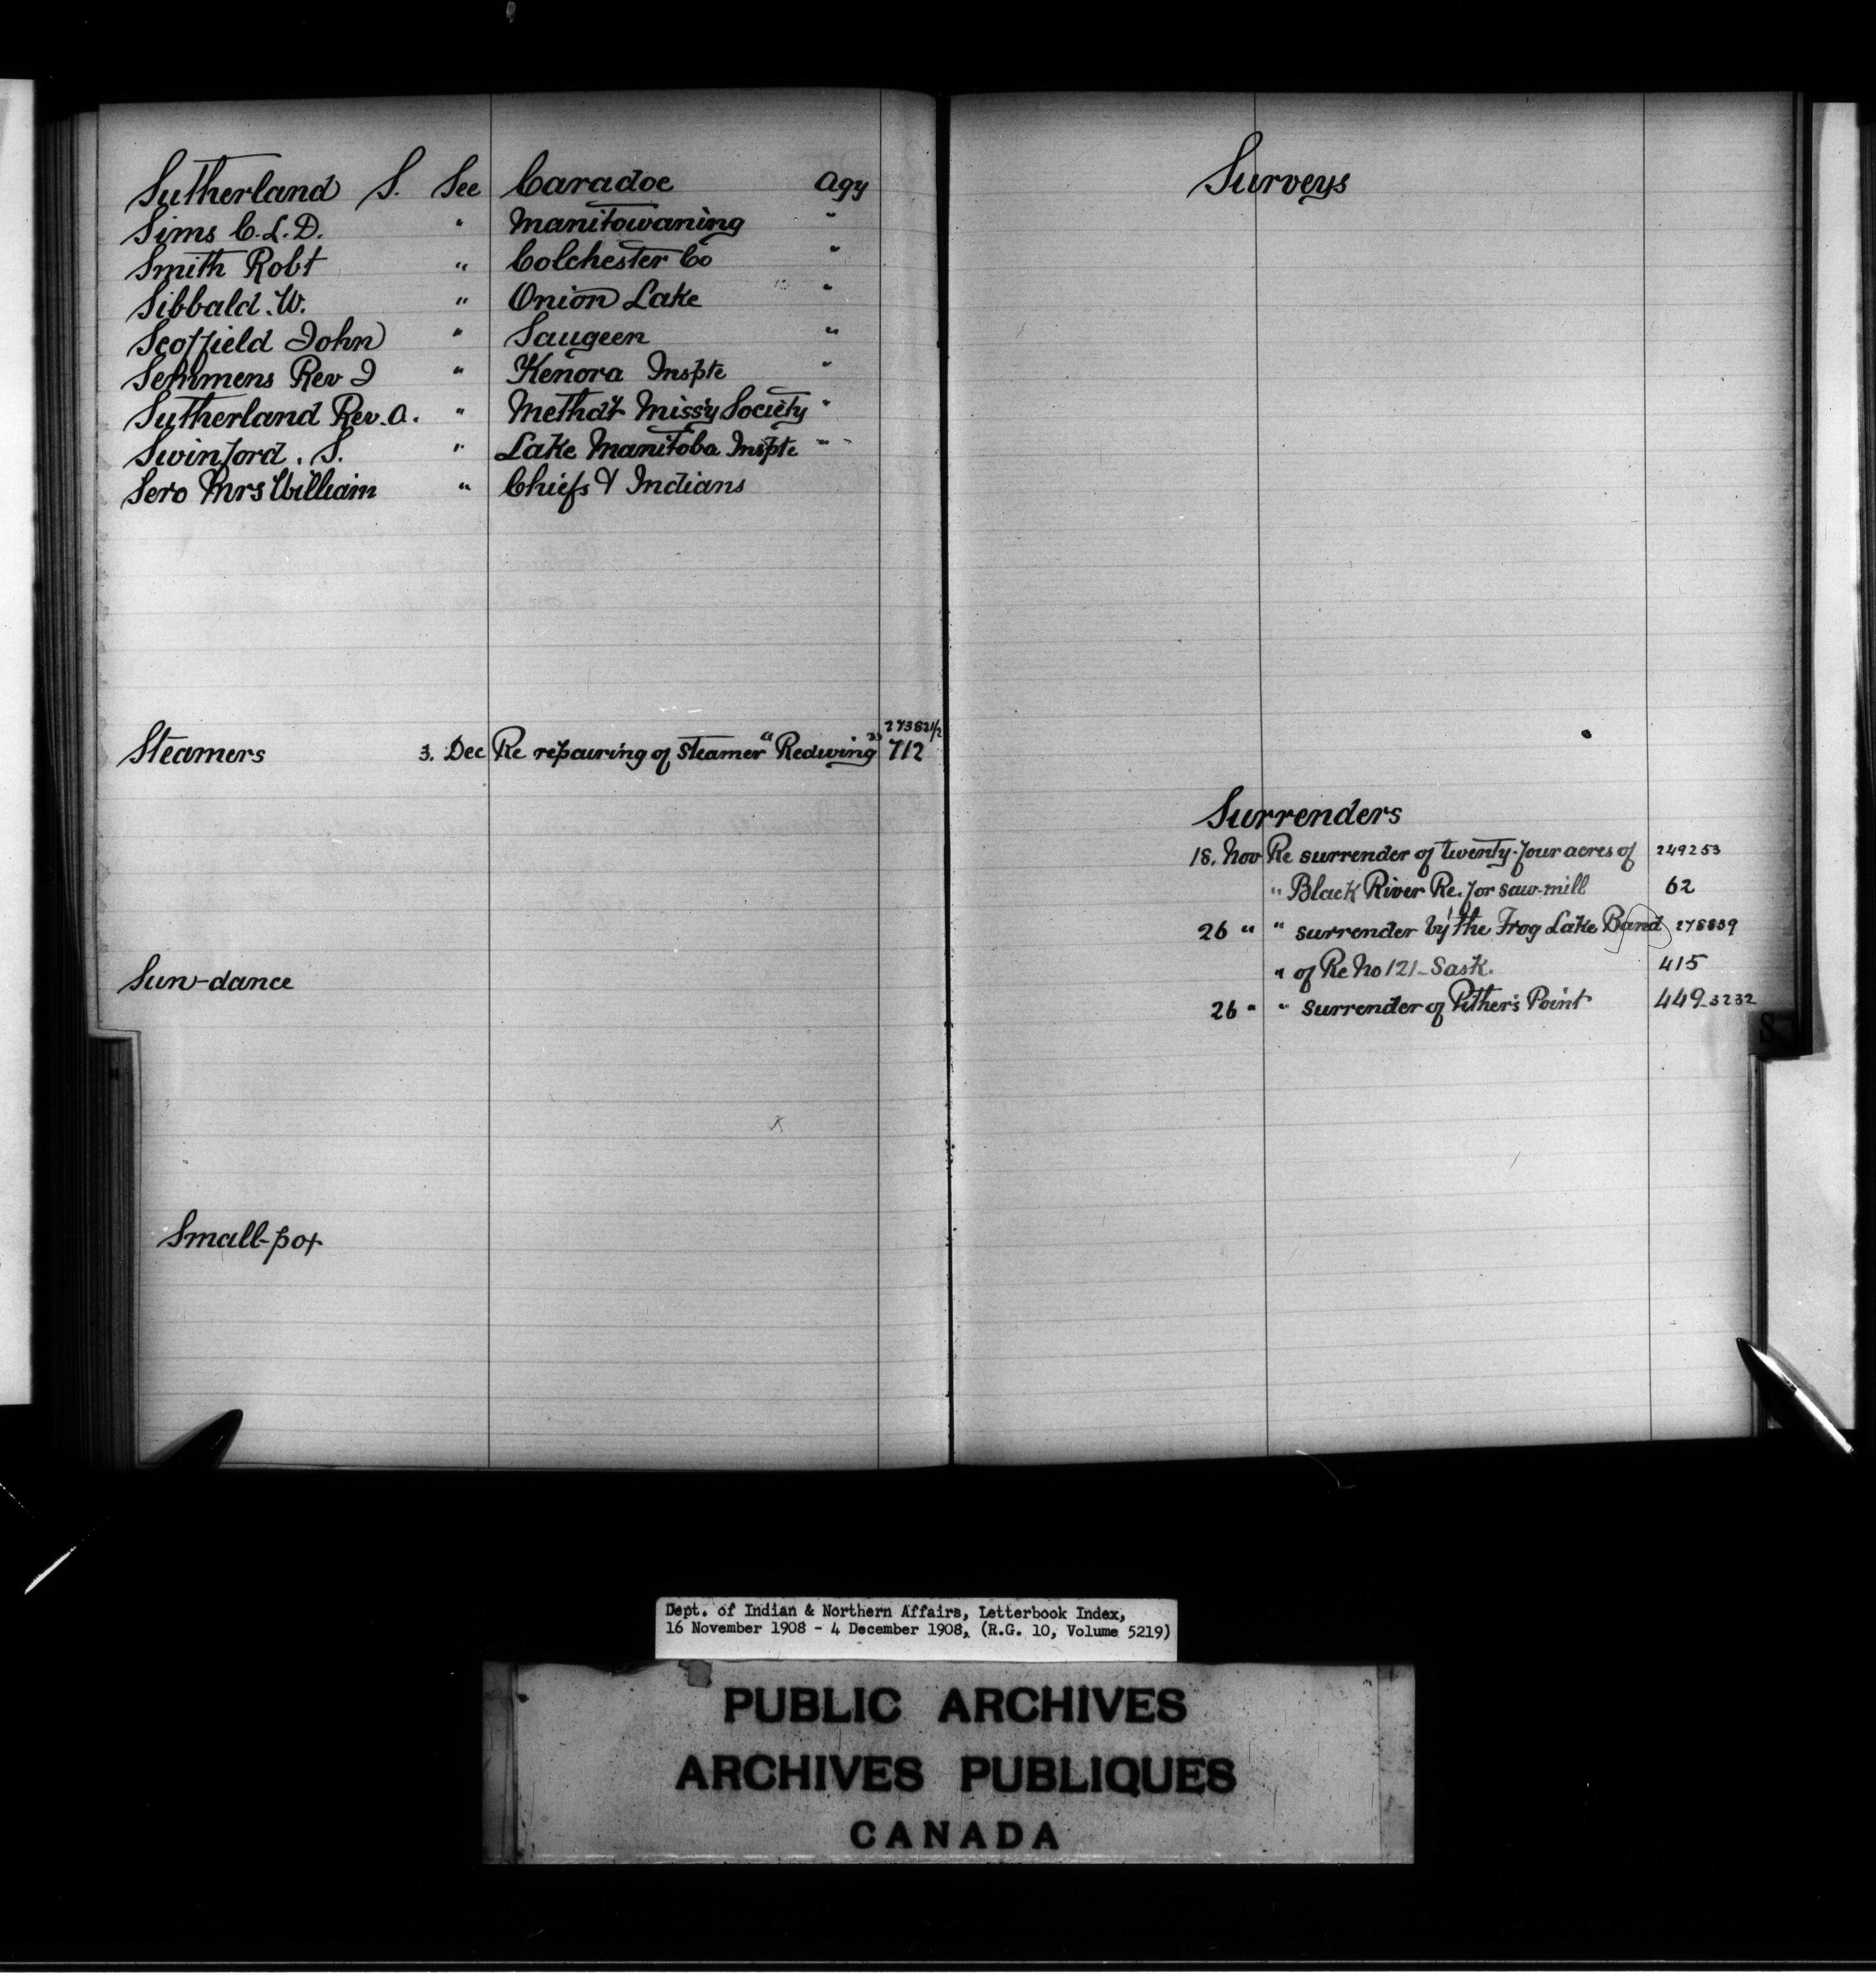 Sutherland S. See Caradoc Agy
Sims C. L. D. " Manitowaning "
Smith Robt " Colchester Co "
Sibbald. W. " Onion Lake "
Scoffield John " Saugeen "
Semmens Rev J " Kenora Inspte "
Sutherland Rev. A. " Methdt Miss'y Society "
Swinford. S. " Lake Manitoba Inspte "
Sero Mrs William " Chiefs & Indians
273821/2
Steamers 3. Dec Re repairing of Steamer "Redwing" 712
Sun-dance
Small-pox
Surveys
Surrenders
18. Nov Re surrender of twenty-four acres of 249253
" Black River Re. for saw-mill 62
26 " " surrender by the Frog Lake Band 278839
" of Re No 121 - Sask. 415
26 " " Surrender of Pither's Point 449-3232
S
Dept. of Indian & Northern Affairs, Letterbook Index,
16 November 1908 - 4 December 1908, (R.G. 10, Volume 5219)
PUBLIC ARCHIVES
ARCHIVES PUBLIQUES
CANADA